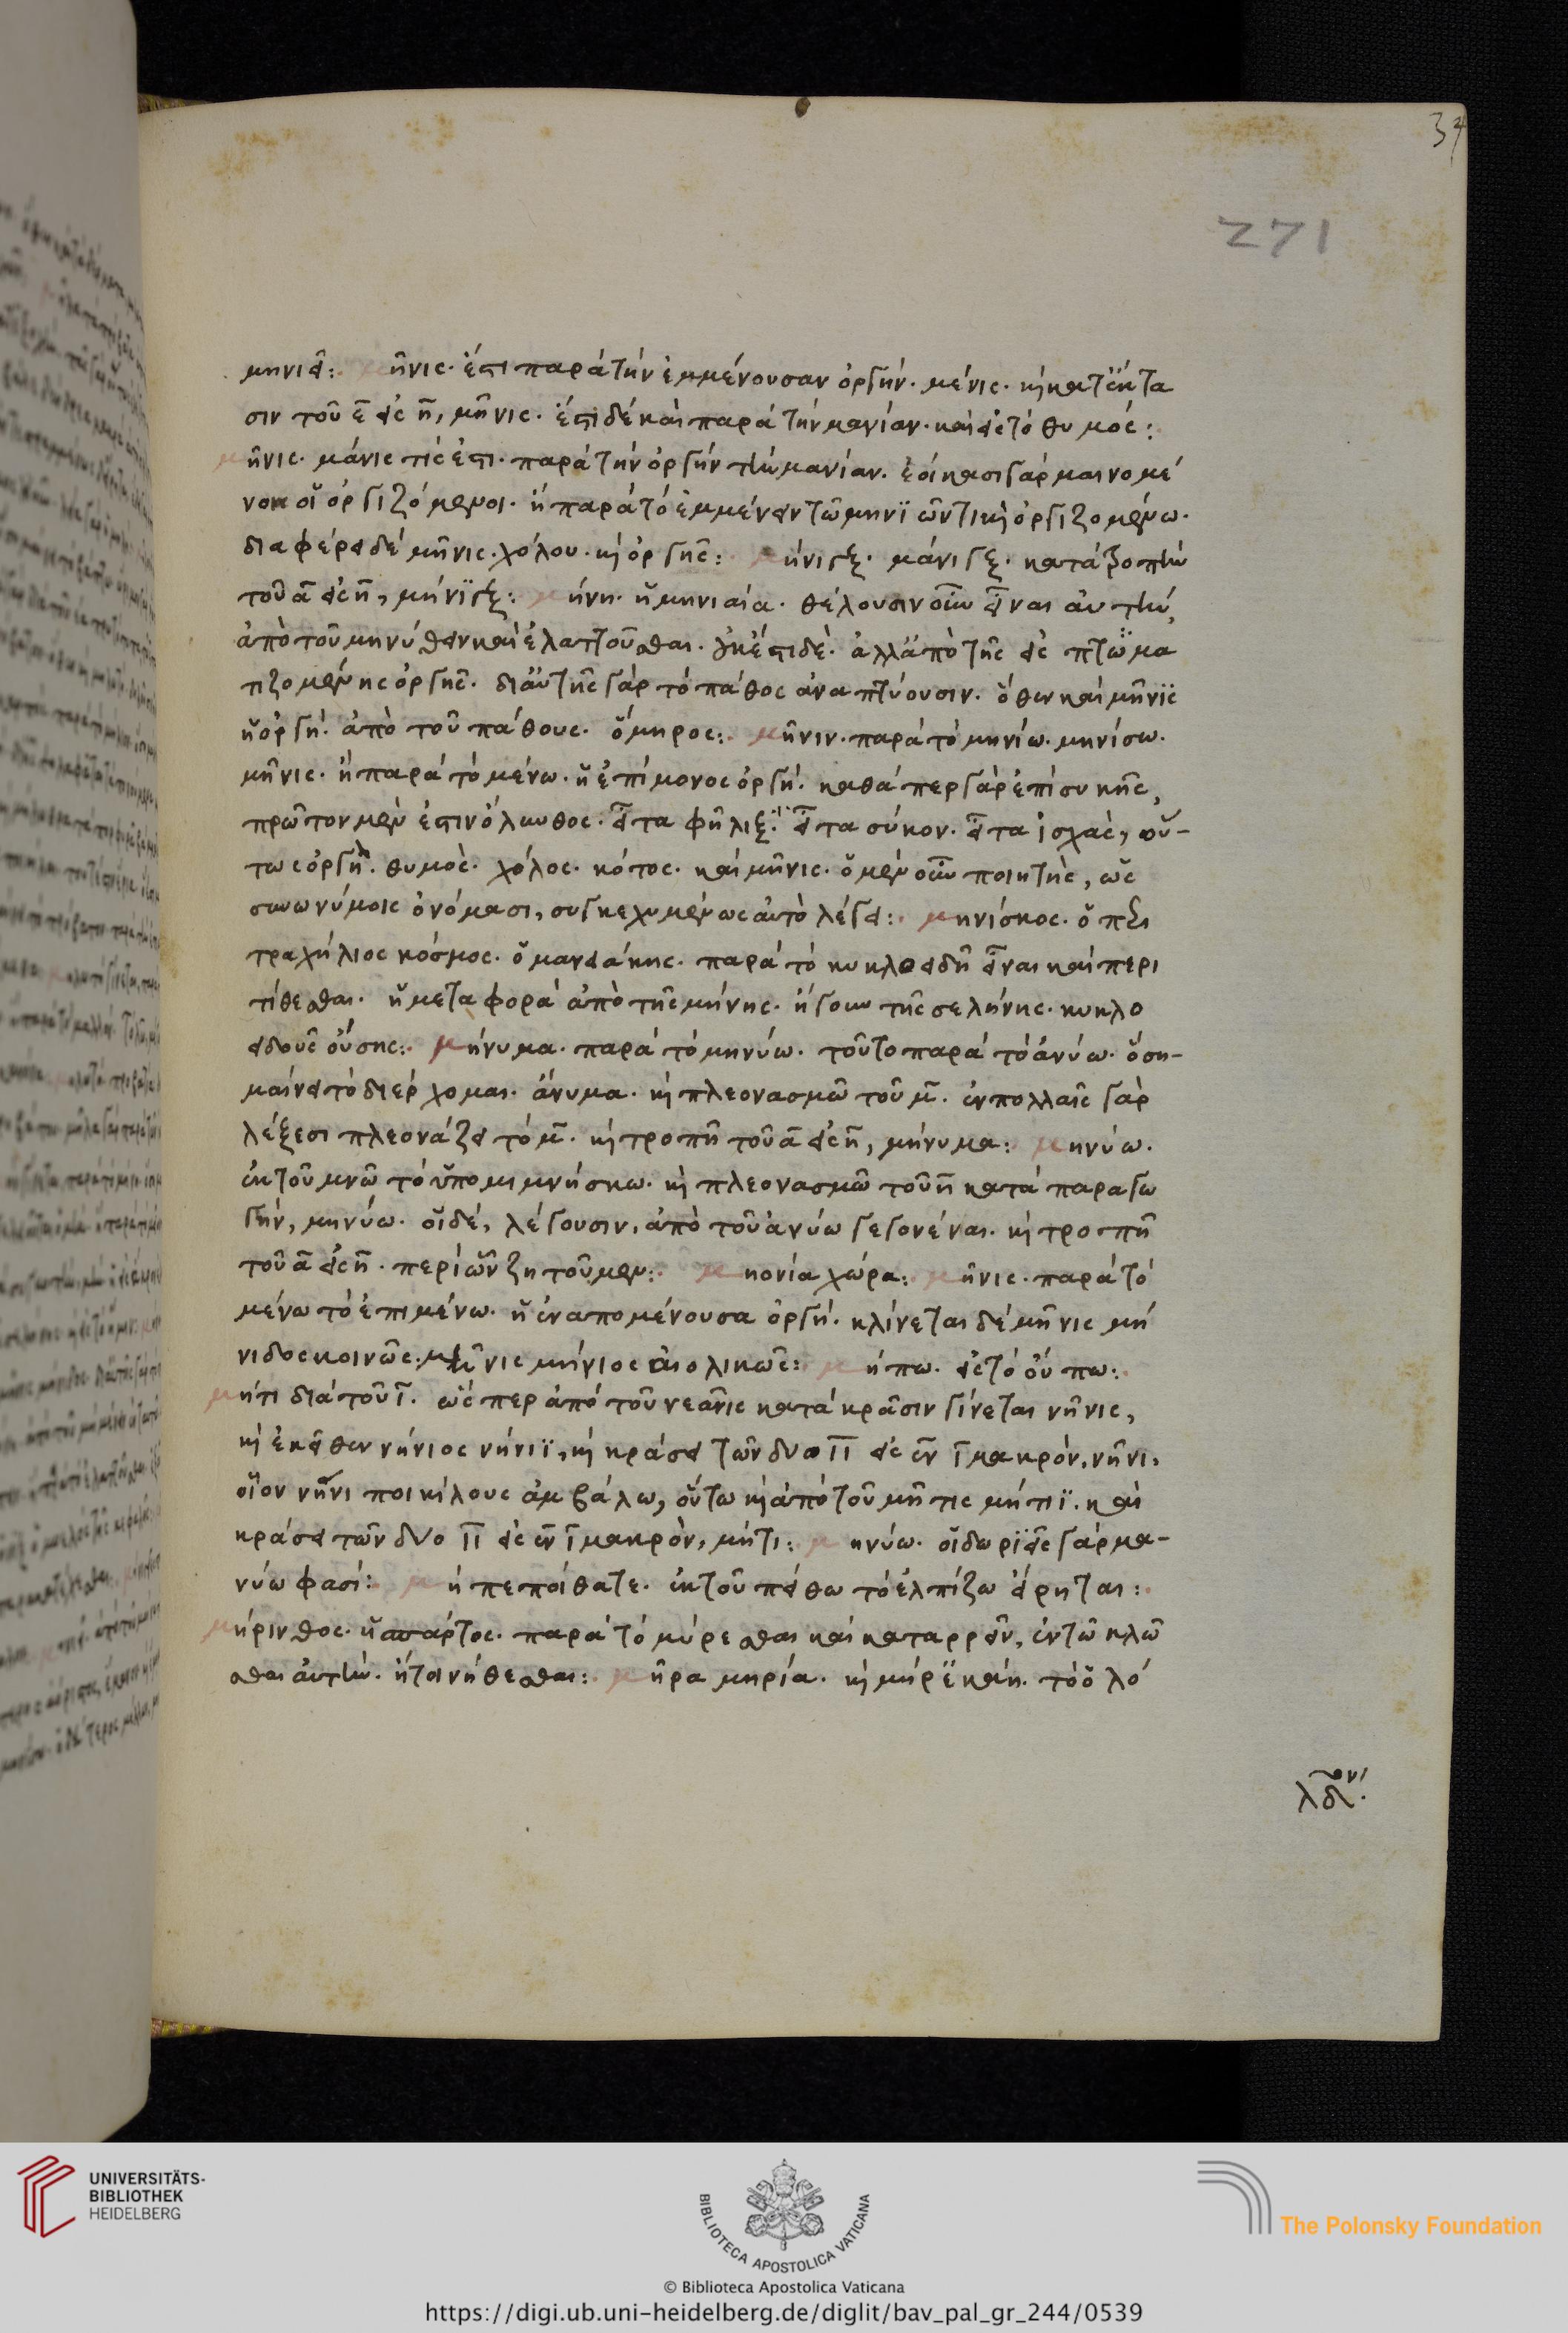 37
271
μηνιεῖ: μῆνις· ἔστι παρὰ τὴν ἐμμένουσαν ὀργήν· μένις· καὶ κατ' ἔκτα
σιν τοῦ ε̄ εἰς η̄, μῆνις· ἔστι δὲ καὶ παρὰ τὴν μανίαν· καὶ εἰς τὸ θυμός:
μῆνις· μάνις τίς ἐστι· παρὰ τὴν ὀργὴν τὴν μανίαν. ἐοίκασι γὰρ μαινομέ
νοις οἱ ὀργιζόμενοι· ἢ παρὰ τὸ ἐμμένειν τῶ μηνϊῶντι καὶ ὀργιζομένω·
διαφέρει δὲ μῆνις· χόλου· καὶ ὀργῆς: μήνιγξ· μάνιγξ· κατὰ τροπὴν
τοῦ ᾱ εἰς η̄, μήνϊγξ: μήνη· ἡ μηνιαία· θέλουσιν οὖν εἶναι αὐτὴν,
ἀπὸ τοῦ μηνύθειν καὶ ἐλαττοῦσθαι. οὐκ ἔστι δὲ· ἀλλ' ἀπὸ τῆς εἰς πτῶμα
τιζομένης ὀργῆς· δι' αὐτῆς γὰρ τὸ πάθος ἀναπτύουσιν. ὅθεν καὶ μῆνϊς
ἡ ὀργή· ἀπὸ τοῦ πάθους· ὅμηρος: μῆνιν· παρὰ τὸ μηνίω· μηνίσω·
μῆνις· ἢ παρὰ τὸ μένω· ἡ ἐπίμονος ὀργή· καθάπερ γὰρ ἐπὶ συκῆς,
πρῶτον μέν ἐστιν ὄλυνθος· εἶτα φῆλιξ· εἶτα σύκον· εἶτα ἰσχὰς, οὕ-
τως ὀργὴ· θυμὸς· χόλος· κότος· καὶ μῆνις· ὁ μὲν οὖν ποιητὴς, ὡς
συνωνύμοις ὀνόμασι, συγκεχυμένως αὐτὸ λέγει: μηνίσκος· ὁ περι
τραχήλιος κόσμος· ὁ μανδάκης· παρὰ τὸ κυκλοειδῆ εἶναι καὶ περι
τίθεσθαι· ἡ μεταφορὰ ἀπὸ τῆς μήνης· ἤγουν τῆς σελήνης· κυκλο
ειδοῦς οὔσης: μήνυμα· παρὰ τὸ μηνύω· τοῦτο παρὰ τὸ ἀνύω· ὃ ση-
μαίνει τὸ διέρχομαι· ἄνυμα· καὶ πλεονασμῶ τοῦ μ̄· ἐν πολλαῖς γὰρ
λέξεσι πλεονάζει τὸ μ̄· καὶ τροπῆ τοῦ ᾱ εἰς η̄, μήνυμα: μηνύω·
ἐκ τοῦ μνῶ τὸ ὑπομιμνήσκω· καὶ πλεονασμῶ τοῦ η̄ κατὰ παραγω
γήν, μηνύω· οἱ δὲ, λέγουσιν, ἀπὸ τοῦ ἀνύω γεγονέναι· καὶ τροπῆ
τοῦ ᾱ εἰς η̄· περὶ ὧν ζητοῦμεν: μηονία χώρα: μῆνις· παρὰ τὸ
μένω τὸ ἐπιμένω· ἡ ἐναπομένουσα ὀργή· κλίνεται δὲ μῆνις μή
νιδος κοινῶς: μῆνις μήνιος αἰολικῶς: μήπω· εἰς τὸ οὔπω:
μήτι διὰ τοῦ ῑ· ὥσπερ ἀπὸ τοῦ νεᾶνις κατὰ κρᾶσιν γίνεται νῆνις,
καὶ ἐκεῖθεν νήνιος νήνιϊ, καὶ κράσει τῶν δύο ῑῑ εἰς ἓν ῑ μακρόν, νῆνι,
οἷον νῆνι ποικίλους ἀμβάλω, οὕτω καὶ ἀπὸ τοῦ μῆτις μήτιϊ· καὶ
κράσει τῶν δύο ῑῑ εἰς ἓν ῑ μακρὸν, μήτι: μηνύω· οἱ δωριεῖς γὰρ μα-
νύω φασί: μὴ πεποίθατε· ἐκ τοῦ πείθω τὸ ἐλπίζω εἴρηται:
μήρινθος· ἡ σπάρτος· παρὰ τὸ μύρεσθαι καὶ καταρρεῖν, ἐν τῶ κλῶ
σθαι αὐτὴν· ἤτοι νήθεσθαι: μῆρα μηρία· καὶ μήρ' ἐκάη· τὸ ὅλο
© Biblioteca Apostolica Vaticana
UNIVERSITÄTS-
BIBLIOTHEK
HEIDELBERG
BIBLIOTECA APOSTOLICA VATICANA
The Polonsky Foundation
https://digi.ub.uni-heidelberg.de/diglit/bav_pal_gr_244/0539